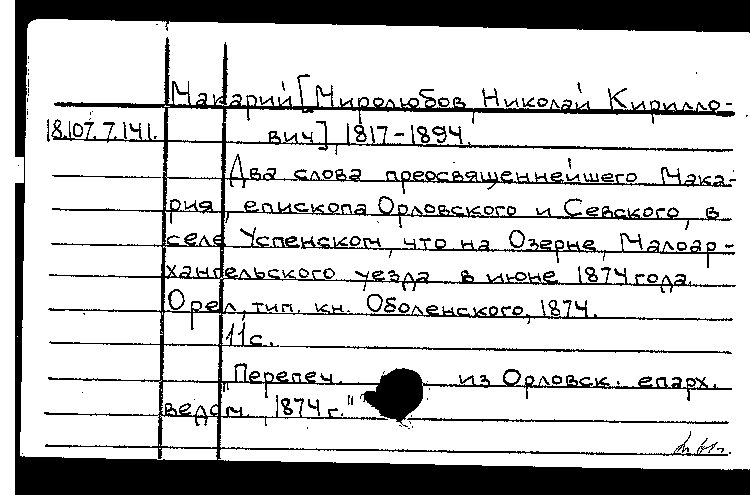 Макарий [Миролюбов, Николай Кирилло-
18.107.7.141. вич], 1817-1894.
Два слова преосвященнейшего Мака-
рия, епископа Орловского и Севского, в
селе Успенском, что на Озерне, Малоар-
хангельского уезда в июне 1874 года.
Орел, тип. кн. Оболенского, 1874.
11 с.
"Перепеч. из Орловск. епарх.
ведом. 1874 г."